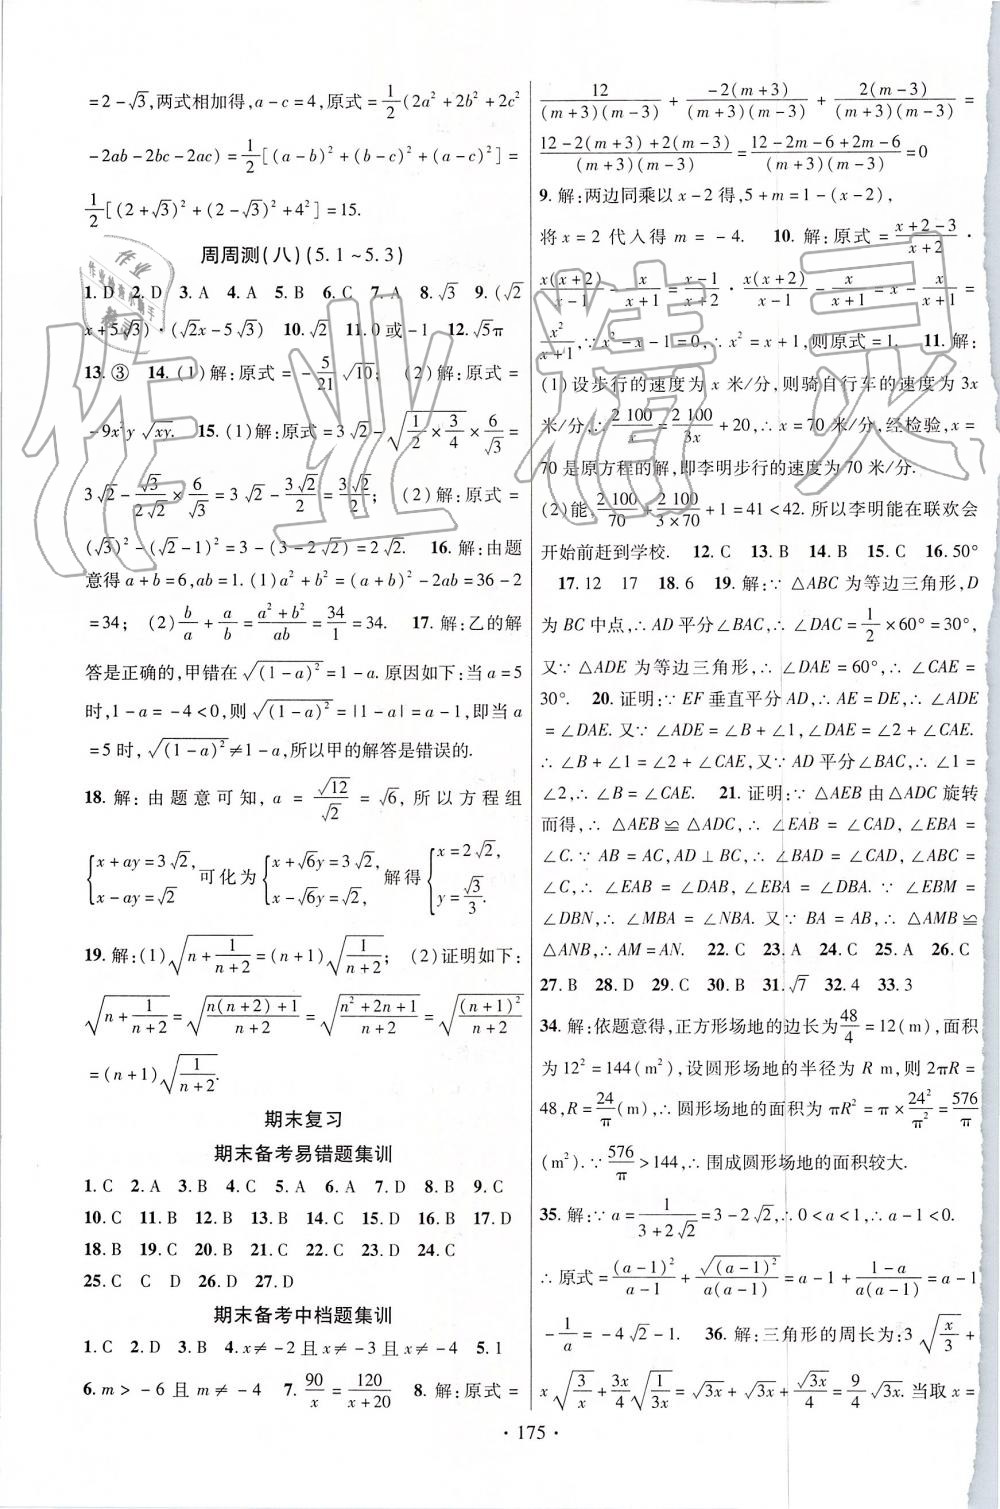 =2-√3,两式相加得,a-c=4,原式=1/2(2a²+2b²+2c²
-2ab-2bc-2ac)=1/2[(a-b)²+(b-c)²+(a-c)²]=
1/2[(2+√3)²+(2-√3)²+4²]=15.
周周测(八)(5.1~5.3)
1.D 2.D 3.A 4.A 5.B 6.C 7.A 8.√3 9.(√2
x+5√3)·(√2x-5√3) 10.√2 11.0或-1 12.√5π
13.③ 14.(1)解:原式=-5/21 √10; (2)解:原式=
-9x²y√xy. 15.(1)解:原式=3√2-√(1/2×3/4)×6/√3=
3√2-√3/2√2×6/√3=3√2-3√2/2=3√2/2; (2)解:原式=
(√3)²-(√2-1)²=3-(3-2√2)=2√2. 16.解:由题
意得a+b=6,ab=1.(1)a²+b²=(a+b)²-2ab=36-2
=34; (2)b/a+a/b=(a²+b²)/ab=34/1=34. 17.解:乙的解
答是正确的,甲错在√(1-a)²=1-a.原因如下:当a=5
时,1-a=-4<0,则√(1-a)²=|1-a|=a-1,即当a
=5时,√(1-a)²≠1-a,所以甲的解答是错误的.
18.解:由题意可知,a=√12/√2=√6,所以方程组
{x+ay=3√2, x-ay=√2 可化为{x+√6y=3√2, x-√6y=√2, 解得{x=2√2, y=√3/3.
19.解:(1)√(n+1/(n+2))=(n+1)√(1/(n+2)); (2)证明如下:
√(n+1/(n+2))=√((n(n+2)+1)/(n+2))=√((n²+2n+1)/(n+2))=√((n+1)²/(n+2))
=(n+1)√(1/(n+2)).
期末复习
期末备考易错题集训
1.C 2.A 3.B 4.C 5.A 6.C 7.D 8.B 9.C
10.C 11.B 12.B 13.B 14.D 15.C 16.B 17.D
18.B 19.C 20.B 21.C 22.D 23.D 24.C
25.C C D 26.D 27.D
期末备考中档题集训
1.C 2.D 3.B 4.x≠-2且x≠-3且x≠-4 5.1
6.m>-6且m≠-4 7.90/x=120/(x+20) 8.解:原式=
12/((m+3)(m-3))+-2(m+3)/((m+3)(m-3))+2(m-3)/((m+3)(m-3))=
(12-2(m+3)+2(m-3))/((m+3)(m-3))=(12-2m-6+2m-6)/((m+3)(m-3))=0
9.解:两边同乘以x-2得,5+m=1-(x-2),
将x=2代入得m=-4. 10.解:原式=(x+2-3)/(x+2)·
x(x+2)/(x-1)-x/(x+1)=(x-1)/(x+2)·x(x+2)/(x-1)-x/(x+1)=x-x/(x+1)=
x²/(x+1),∵x²-x-1=0,∴x²=x+1,则原式=1. 11.解:
(1)设步行的速度为x米/分,则骑自行车的速度为3x
米/分,∴2 100/x=2 100/3x+20,∴x=70米/分,经检验,x=
70是原方程的解,即李明步行的速度为70米/分.
(2)能,2 100/70+2 100/(3×70)+1=41<42.所以李明能在联欢会
开始前赶到学校. 12.C 13.B 14.B 15.C 16.50°
17.12 17 18.6 19.解:∵△ABC为等边三角形,D
为BC中点,∴AD平分∠BAC,∴∠DAC=1/2×60°=30°,
又∵△ADE为等边三角形,∴∠DAE=60°,∴∠CAE=
30°. 20.证明:∵EF垂直平分AD,∴AE=DE,∴∠ADE
=∠DAE.又∵∠ADE=∠B+∠1,∠DAE=∠2+∠CAE.
∴∠B+∠1=∠2+∠CAE,又∵AD平分∠BAC,∴∠1=
∠2,∴∠B=∠CAE. 21.证明:∵△AEB由△ADC旋转
而得,∴△AEB≌△ADC,∴∠EAB=∠CAD,∠EBA=
∠C.∵AB=AC,AD⊥BC,∴∠BAD=∠CAD,∠ABC=
∠C,∴∠EAB=∠DAB,∠EBA=∠DBA.∵∠EBM=
∠DBN,∴∠MBA=∠NBA.又∵BA=AB,∴△AMB≌
△ANB,∴AM=AN. 22.C 23.A 24.C 25.A 26.C
27.B 28.D 29.C 30.B 31.√7 32.4 33.3
34.解:依题意得,正方形场地的边长为48/4=12(m),面积
为12²=144(m²),设圆形场地的半径为R m,则2πR=
48,R=24/π(m),∴圆形场地的面积为πR²=π×24²/π²=576/π
(m²).∵576/π>144,∴围成圆形场地的面积较大.
35.解:∵a=1/(3+2√2)=3-2√2,∴0<a<1,∴a-1<0.
∴原式=(a-1)²/(a-1)+√(a-1)²/(a(a-1))=a-1+(1-a)/(a(a-1))=a-1
-1/a=-4√2-1. 36.解:三角形的周长为:3√(x/3)+
x√(3/x)+3x/4√(1/3x)=√3x+√3x+√3x/4=9/4√3x.当取x=
·175·
作业精灵